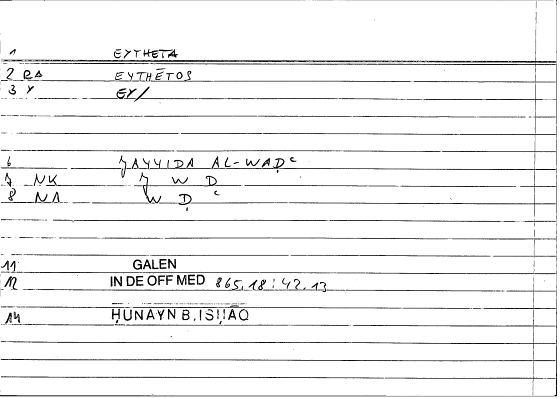 1 EYTHETA
2 RA EYTHĒTOS
3 Y EY/
6 JAYYIDA AL-WAḌʿ
7 NK J W Ḍ
8 NA W Ḍ ʿ
11 GALEN
12 IN DE OFF MED 865,18 : 42.13
14 ḤUNAYN B. ISḤĀQ